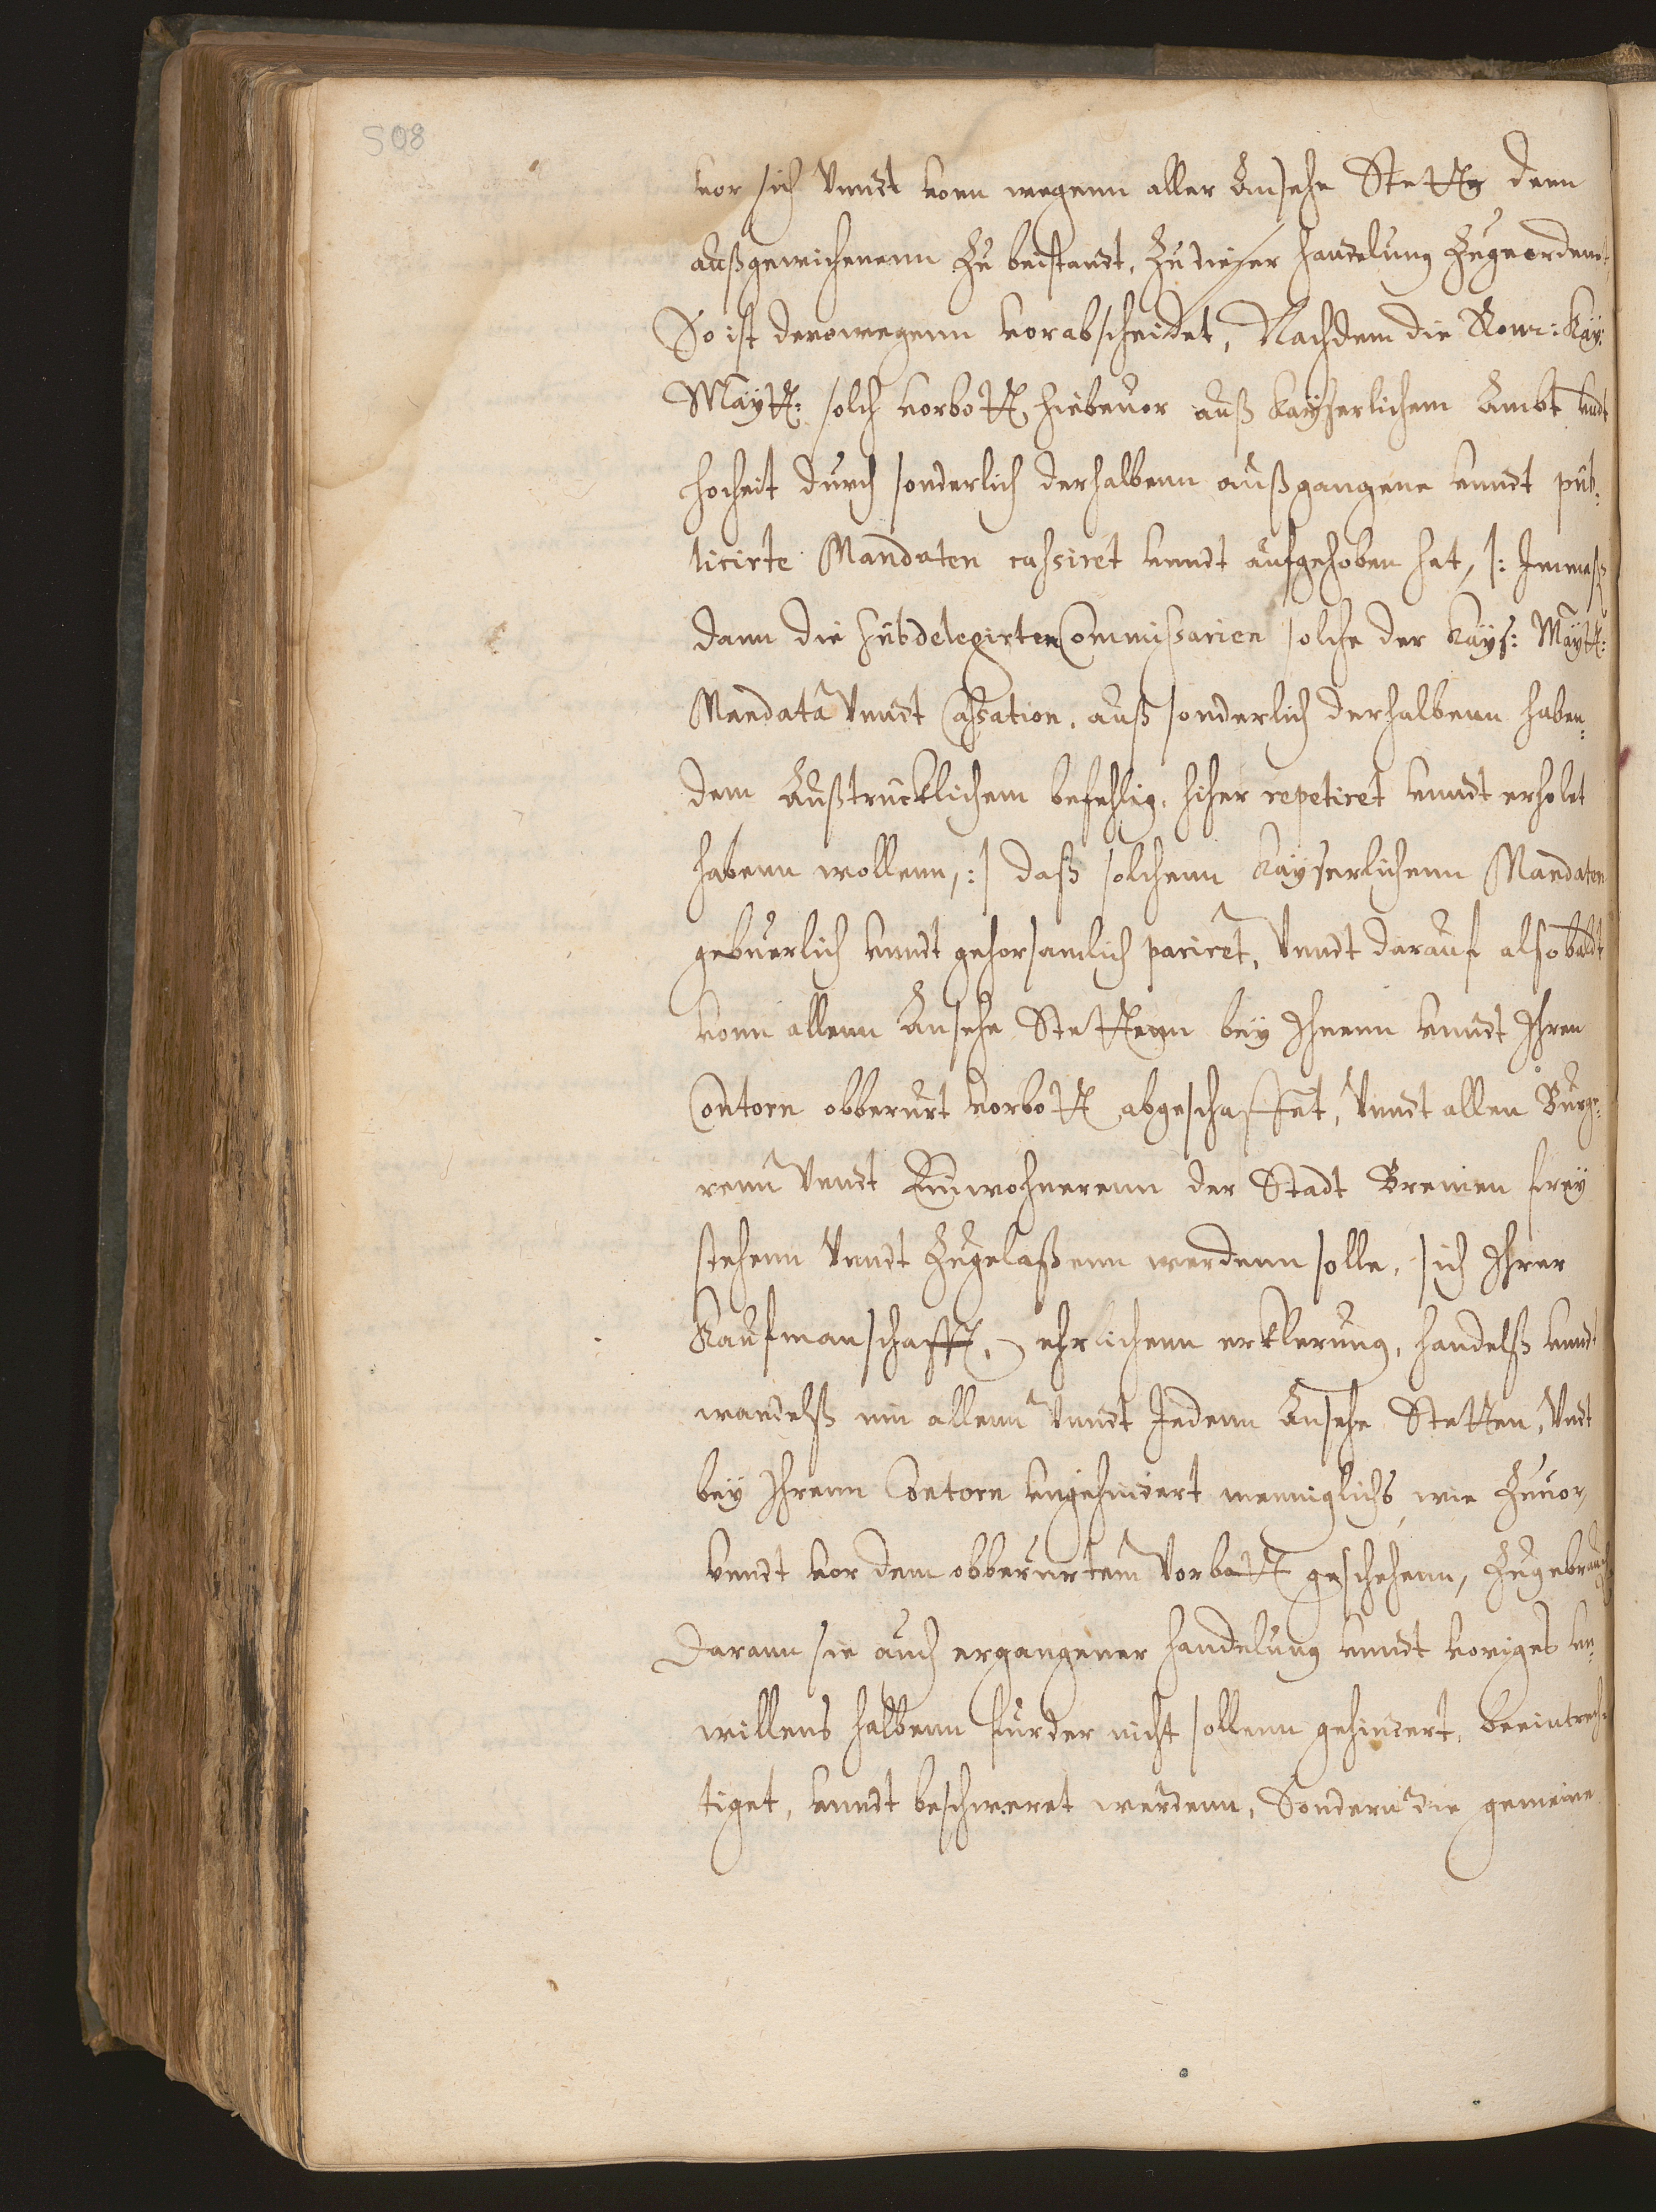 508
vor sich vnndt vonn wegenn aller Ansehe Stette denn
außgewichenenn zu beistandt, zu dieser handelung zugeordent,
So ist derowegenn vorabscheidet, Nachdem die Rom: Kay:
Maytt: solch vorbott, hiebeuor auß Kayserlichem Ambt vndt
hocheit durch sonderlich derhalbenn außgangene vnndt pub-
licirte Mandaten cassiret vnndt aufgehoben hat, |: Inmaß
dann die subdelegirten Commissarien solche der Kays: Maytt:
Mandata vnndt Cassation, auß sonderlich derhalbenn haben-
dem Außtrucklichem befehlig, hiher repetiret vnndt erholet
habenn wollenn, :| daß solchenn Kayserlichenn Mandaten
gebuerlich vnndt gehorsamlich pariret, vnndt darauf alsobaldt
vonn allenn Ansehe Stettenn bey Ihnenn vnndt Ihren
Contorn obberurt vorbott abgeschaffet, vnndt allen Burge-
renn vnndt Einwohnerenn der Stadt Bremen frey
stehenn vnndt zugelaßenn werdenn solle, sich Ihrer
Kaufmanschafft, ehrlichenn erklerung, handelß vnndt
wandelß inn allenn vnndt Jedenn Ansehe Stetten, vndt
bey Ihrenn Contorn vngehindert menniglichs wie zuuor,
vnndt vor dem obberurtem vorbott geschehenn, zugebrauch
Darann sie auch ergangener handelung vnndt voriges vn-
willens halbenn furder nicht sollenn gehindert, beeintrech-
tiget, vnndt beschweret werdenn, Sondern die gemeine